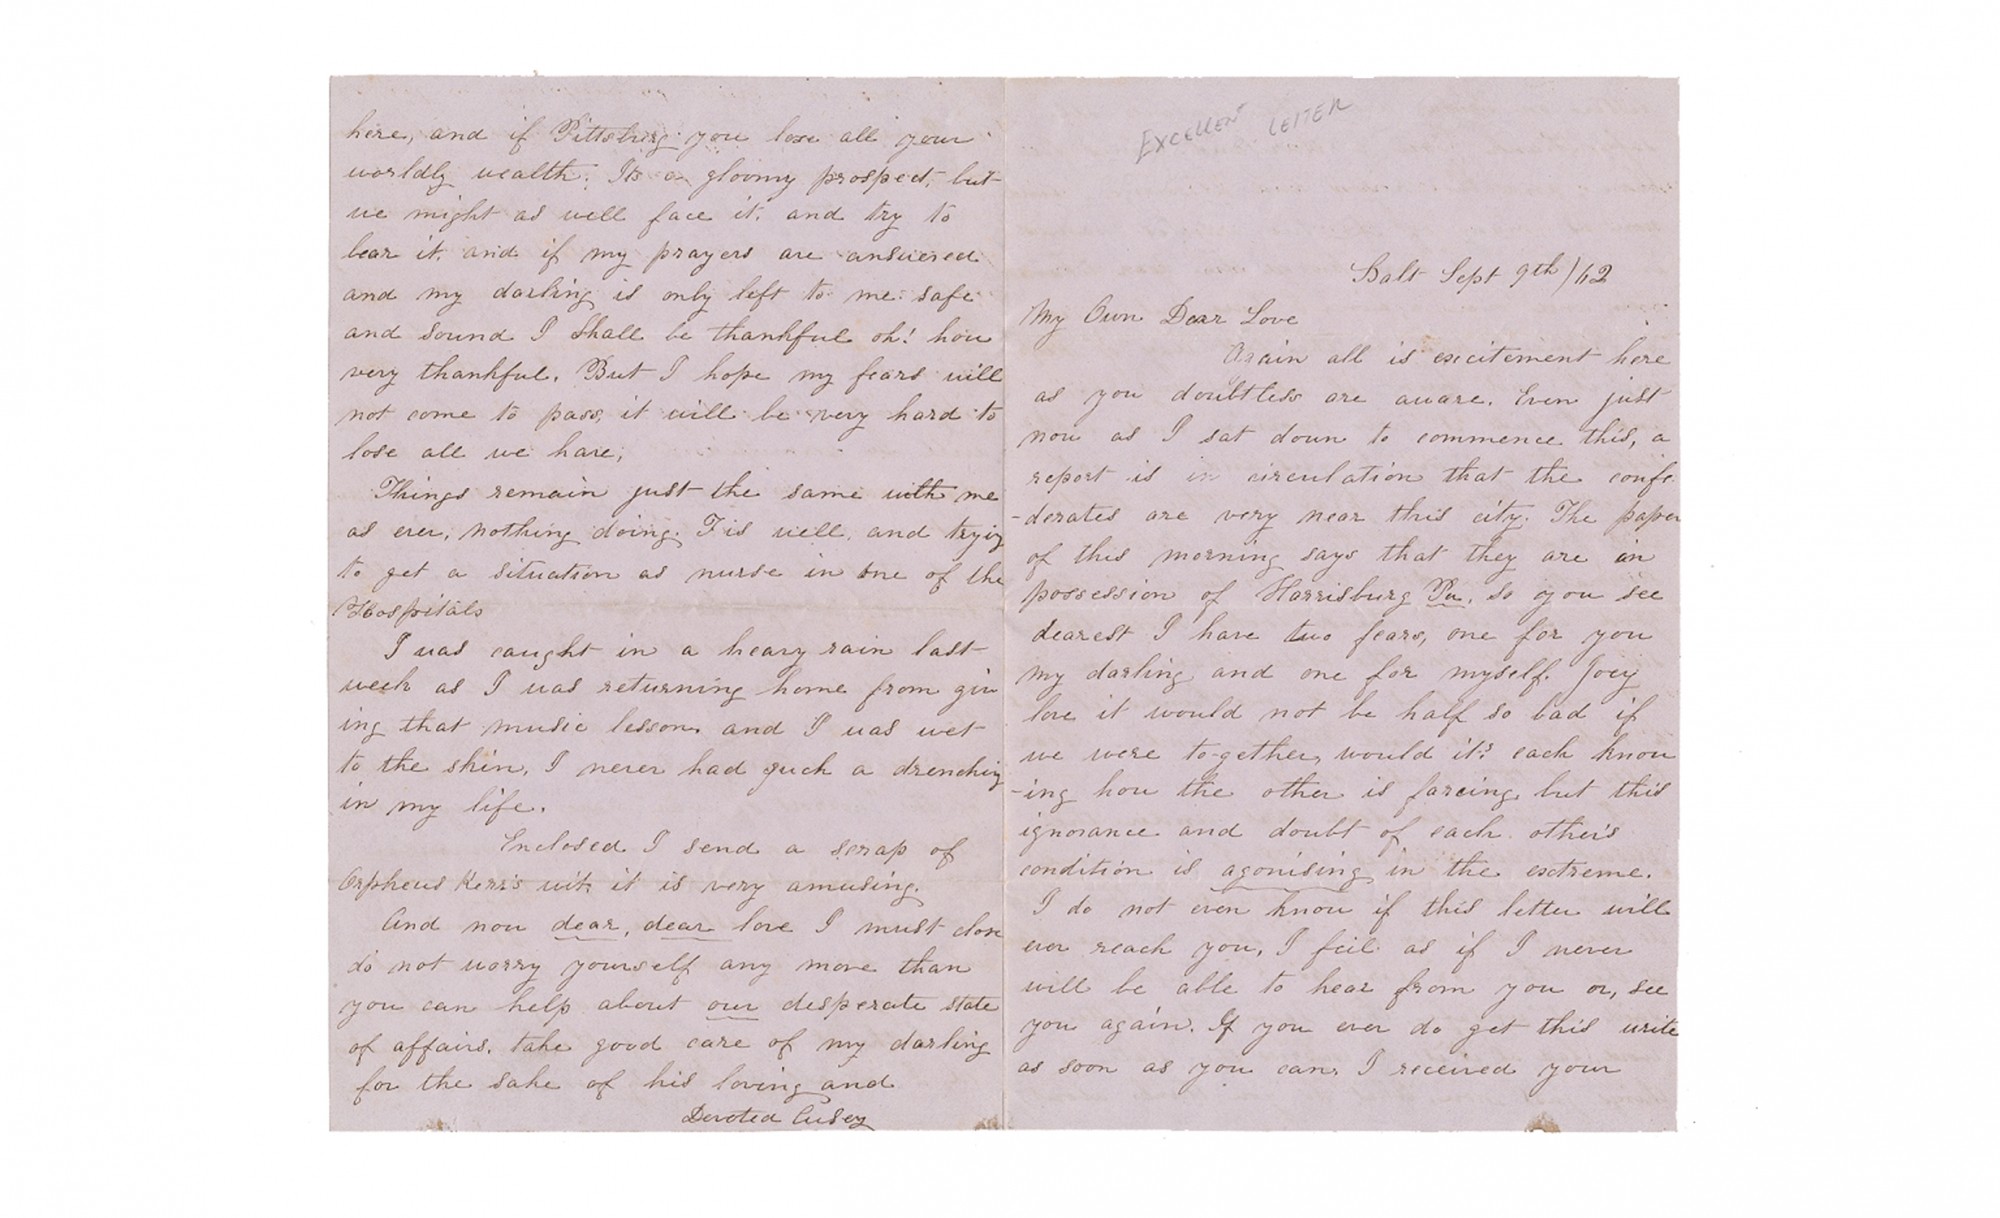 EXCELLENT LETTER
Balt Sept 9th /62
My Own Dear Love
Again all is excitement here
as you doubtless are aware. Even just
now as I sat down to commence this, a
report is in circulation that the confe
-derates are very near this city. The paper
of this morning says that they are in
possession of Harrisburg Pa. so you see
dearest I have two fears, one for you
my darling and one for myself. Joey
love it would not be half so bad if
we were to-gether, would it? each know
-ing how the other is fareing, but this
ignorance and doubt of each other's
condition is agonising in the extreme.
I do not even know if this letter will
ever reach you, I feel as if I never
will be able to hear from you or, see
you again. If you ever do get this write
as soon as you can. I received your
here, and if Pittsburg you lose all your
worldly wealth. Its a gloomy prospect, but
we might as well face it, and try to
bear it, and if my prayers are answered
and my darling is only left to me safe
and sound I shall be thankful oh! how
very thankful. But I hope my fears will
not come to pass, it will be very hard to
lose all we have,
Things remain just the same with me
as ever, nothing doing. F is well, and trying
to get a situation as nurse in one of the
Hospitals
I was caught in a heavy rain last
week as I was returning home from giv
ing that music lesson, and I was wet
to the skin, I never had such a drenching
in my life.
Enclosed I send a scrap of
Orpheus Kerr's wit, it is very amusing.
And now dear, dear love I must close
do not worry yourself any more than
you can help about our desperate state
of affairs, take good care of my darling
for the sake of his loving and
Devoted Cusey